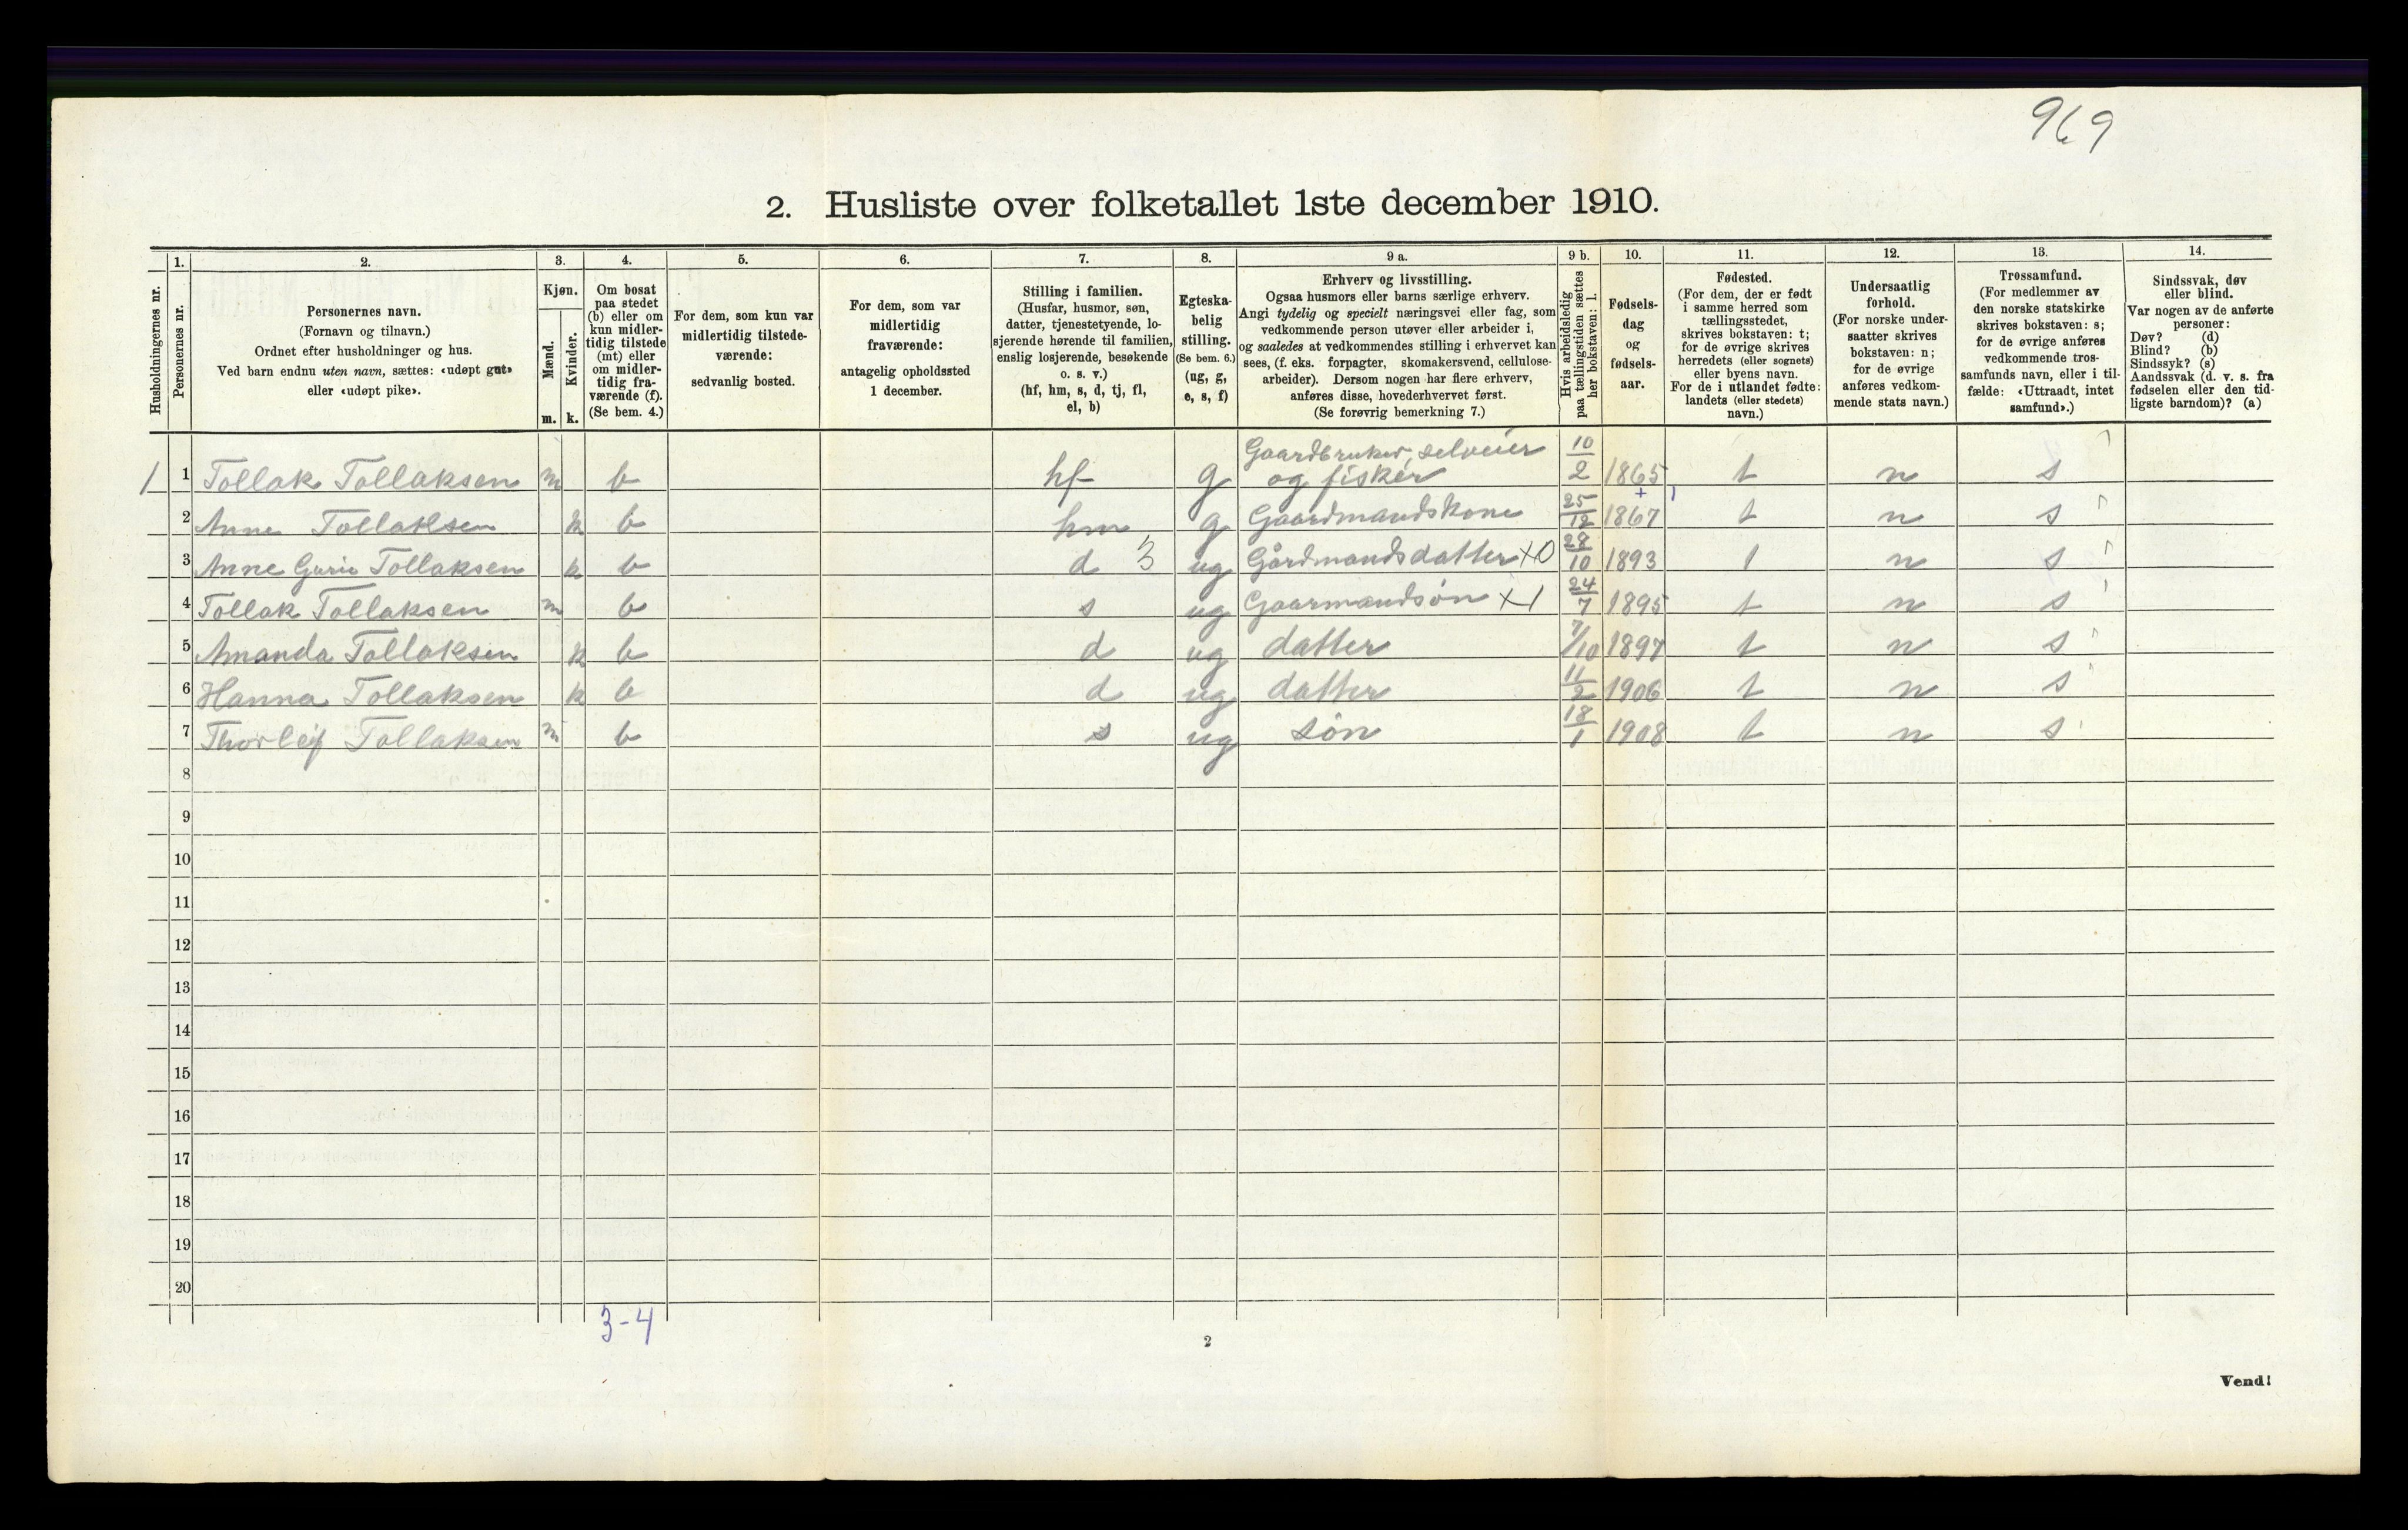 969
2. Husliste over folketallet 1ste december 1910.
1. 2. 3. 4. 5. 6. 7. 8. 9 a. 9 b. 10. 11. 12. 13. 14.
Husholdningernes nr.
Personernes nr.
Personernes navn.
(Fornavn og tilnavn.)
Ordnet efter husholdninger og hus.
Ved barn endnu uten navn, sættes: «udøpt gut»
eller «udøpt pike».
Kjøn.
Mænd.
Kvinder.
m. k.
Om bosat
paa stedet
(b) eller om
kun midler-
tidig tilstede
(mt) eller
om midler-
tidig fra-
værende (f).
(Se bem. 4.)
For dem, som kun var
midlertidig tilstede-
værende:
sedvanlig bosted.
For dem, som var
midlertidig
fraværende:
antagelig opholdssted
1 december.
Stilling i familien.
(Husfar, husmor, søn,
datter, tjenestetyende, lo-
sjerende hørende til familien,
enslig losjerende, besøkende
o. s. v.)
(hf, hm, s, d, tj, fl,
el, b)
Egteska-
belig
stilling.
(Se bem. 6.)
(ug, g,
e, s, f)
Erhverv og livsstilling.
Ogsaa husmors eller barns særlige erhverv.
Angi tydelig og specielt næringsvei eller fag, som
vedkommende person utøver eller arbeider i,
og saaledes at vedkommendes stilling i erhvervet kan
sees, (f. eks. forpagter, skomakersvend, cellulose-
arbeider). Dersom nogen har flere erhverv,
anføres disse, hovederhvervet først.
(Se forøvrig bemerkning 7.)
Hvis arbeidsledig
paa tællingstiden sættes
her bokstaven: l.
Fødsels-
dag
og
fødsels-
aar.
Fødested.
(For dem, der er født
i samme herred som
tællingsstedet,
skrives bokstaven: t;
for de øvrige skrives
herredets (eller sognets)
eller byens navn.
For de i utlandet fødte:
landets (eller stedets)
navn.)
Undersaatlig
forhold.
(For norske under-
saatter skrives
bokstaven: n;
for de øvrige
anføres vedkom-
mende stats navn.)
Trossamfund.
(For medlemmer av
den norske statskirke
skrives bokstaven: s;
for de øvrige anføres
vedkommende tros-
samfunds navn, eller i til-
fælde: «Uttraadt, intet
samfund».)
Sindssvak, døv
eller blind.
Var nogen av de anførte
personer:
Døv? (d)
Blind? (b)
Sindssyk? (s)
Aandssvak (d. v. s. fra
fødselen eller den tid-
ligste barndom)? (a)
1 1 Tollak Tollaksen m b hf g Gaardbruker, selveier og fisker 10/2 1865 t n s
2 Anne Tollaksen k b hm g Gaardmandskone 25/12 1867 t n s
3 Anne Gurie Tollaksen k b d 3 ug Gårdmandsdatter x0 28/10 1893 t n s
4 Tollak Tollaksen m b s ug Gaarmandsøn x1 24/7 1895 t n s
5 Amanda Tollaksen k b d ug datter 7/10 1897 t n s
6 Hanna Tollaksen k b d ug datter 11/2 1906 t n s
7 Thorleif Tollaksen m b s ug søn 18/1 1908 t n s
8
9
10
11
12
13
14
15
16
17
18
19
20
3-4
2
Vend!